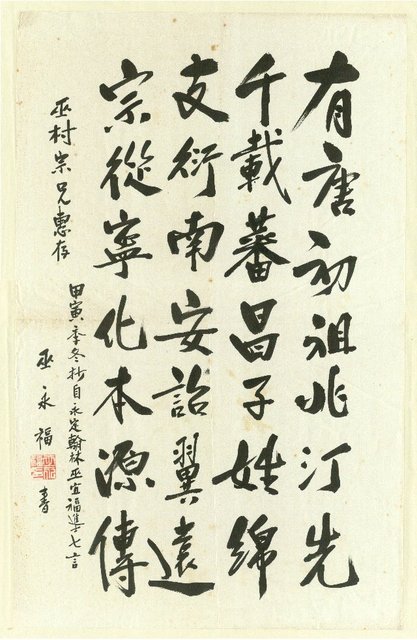 有唐初祖兆汀先
千載蕃昌子姓綿
支衍南安詒翼遠
宗從寧化本源傳
巫村宗兄惠存
甲寅季冬抄自永定翰林巫宜福進士七言
巫永福書